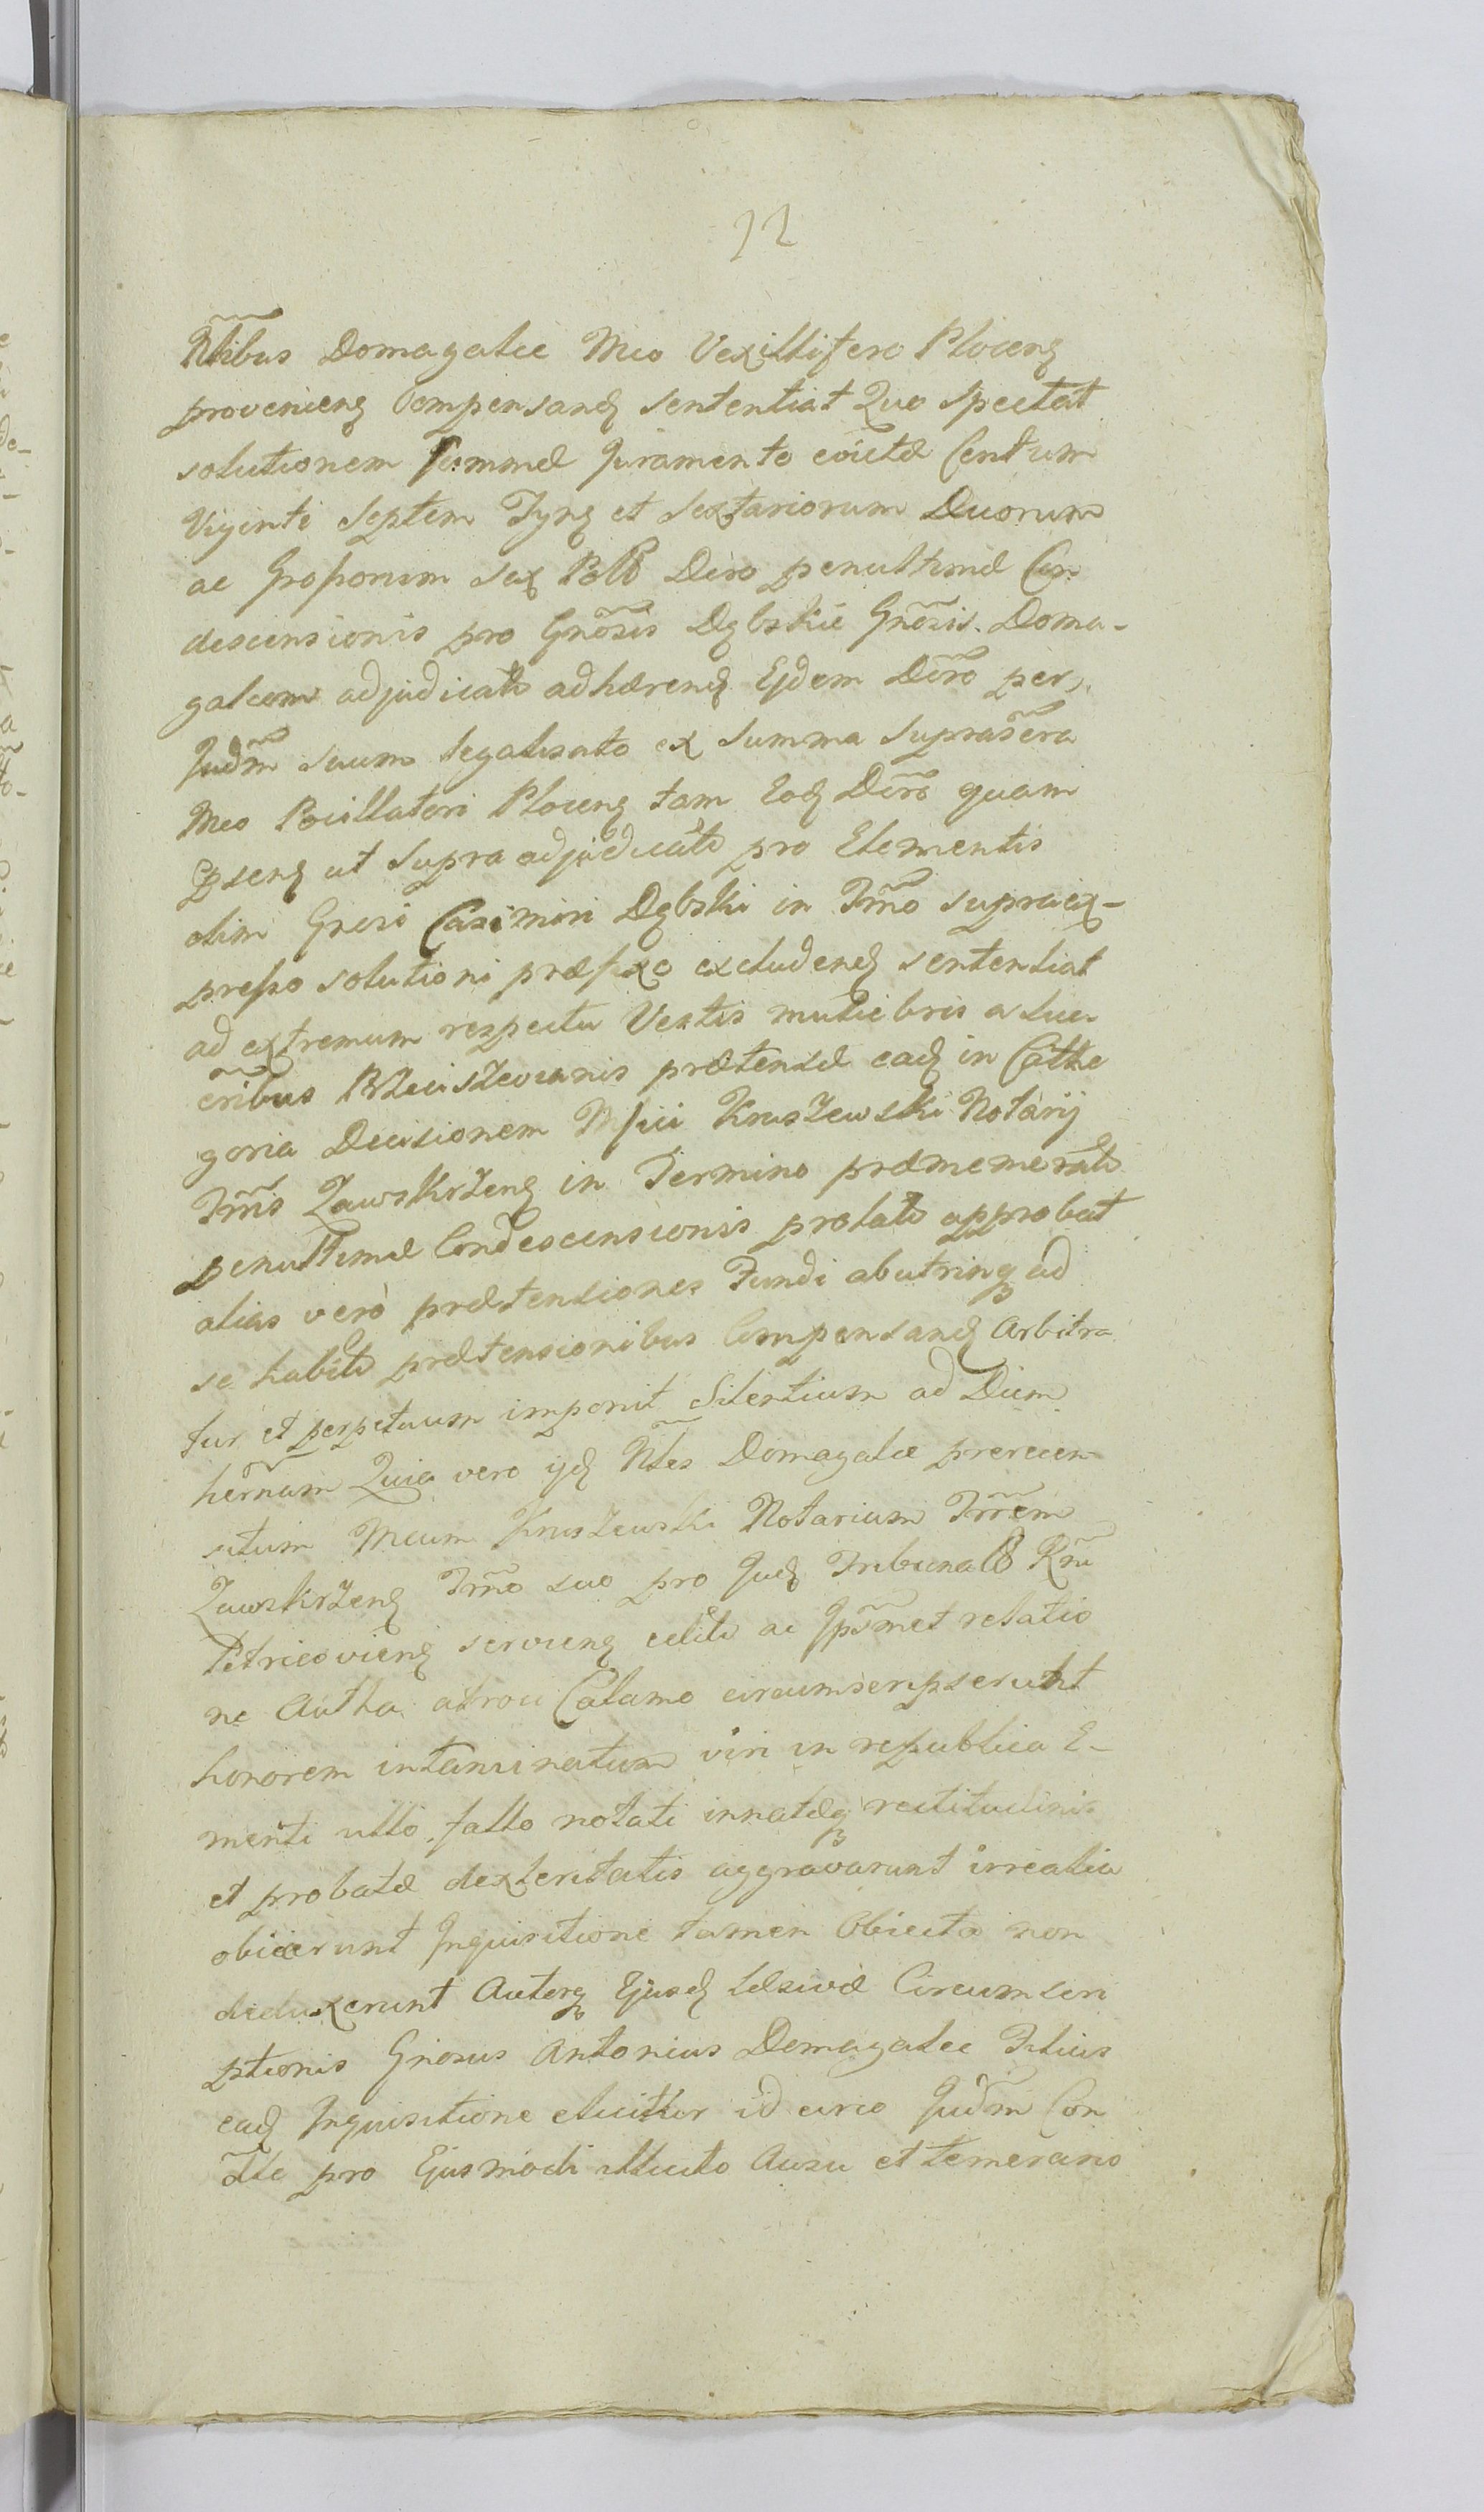 12
Ntibus Domagalce Mco Vexillifero Plocen
provenien Compensand sententiat Quo spectat
solutionem summæ Juramento evictæ Centum
Viginti Septem Tynf et sextariorum Duorum
ac Grossorum sex Poll Dcro penultimæ Con
descensionis pro Gnosis Dębskie Gnosis Doma-
galcom adjudicata adhæren Ejdem Dcro per
Judm suum legalisato ex summa suprascra
Mco Pocillatori Plocen tam Eod Dcro quam
Pnsen ut supra adjudicata pro Elementis
olim Gnosi Casimiri Dębski in Trno supra ex-
presso solutioni præfixo excludend sententiat
ad extremum respectu Vestis muliebris a suc-
cribus Brzeciszewianis prætensæ ead in Cathe
goria Decisionem Mfici Kruszewski Notarij
Trris Zawskrzen in Termino præmemorato
penultimæ Condescensionis prolata approbat
alias verò prætensiones Fundi abutrinq ad
se habitis prætensionibus Compensand Arbitra
tur et perpetuum imponit Silentium ad Diem
hernam Quia vero ijd Ntes Domagalce prerecen-
situm Mcum Kruszewski Notarium Trrem
Zawskrzen Trno suo pro Jud Tribunall Rni
Petricovien servien edito ac Ipsmet relatio
ne Autha atroci Calamo circumscripserunt
honorem intaminatum viri in republica E-
meriti ullo fallo notati innatæq rectitudinis
et probatæ dexteritatis aggravarunt irrealia
obiecerunt Inquisitione tamen Obiecta non
deduxerunt Autorq Ejusd læsivæ Circumscri
ptionis Gnosus Antonius Domagalce Filius
ead Inquisitione elicitur id circo Judm Con
dtle pro Ejusmodi illicito Ausu et temerario